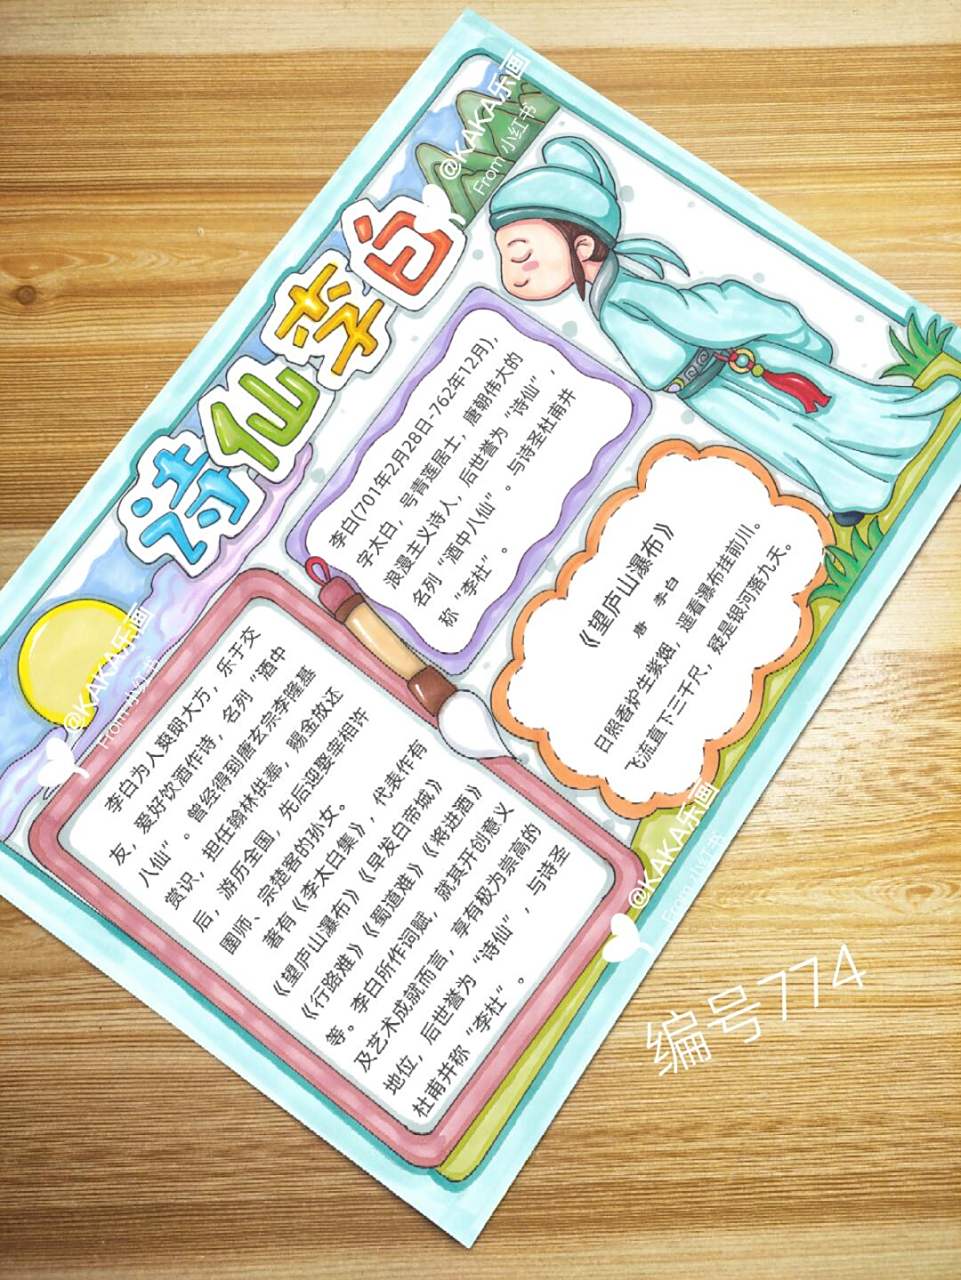 诗仙李白
李白(701年2月28日-762年12月),
字太白，号青莲居士，唐朝伟大的
浪漫主义诗人，后世誉为“诗仙”,
名列“酒中八仙”。与诗圣杜甫并
称“李杜”。
《望庐山瀑布》
唐 李白
日照香炉生紫烟，遥看瀑布挂前川。
飞流直下三千尺，疑是银河落九天。
李白为人爽朗大方，乐于交
友，爱好饮酒作诗，名列“酒中
八仙”。曾经得到唐玄宗李隆基
赏识，担任翰林供奉，赐金放还
后，游历全国，先后迎娶宰相许
圉师、宗楚客的孙女。
著有《李太白集》，代表作有
《望庐山瀑布》《早发白帝城》
《行路难》《蜀道难》《将进酒》
等。李白所作词赋，就其开创意义
及艺术成就而言，享有极为崇高的
地位，后世誉为“诗仙”，与诗圣
杜甫并称“李杜”。
@KAKA乐画
From 小红书
@KAKA乐画
From 小红书
@KAKA乐画
From 小红书
编号774